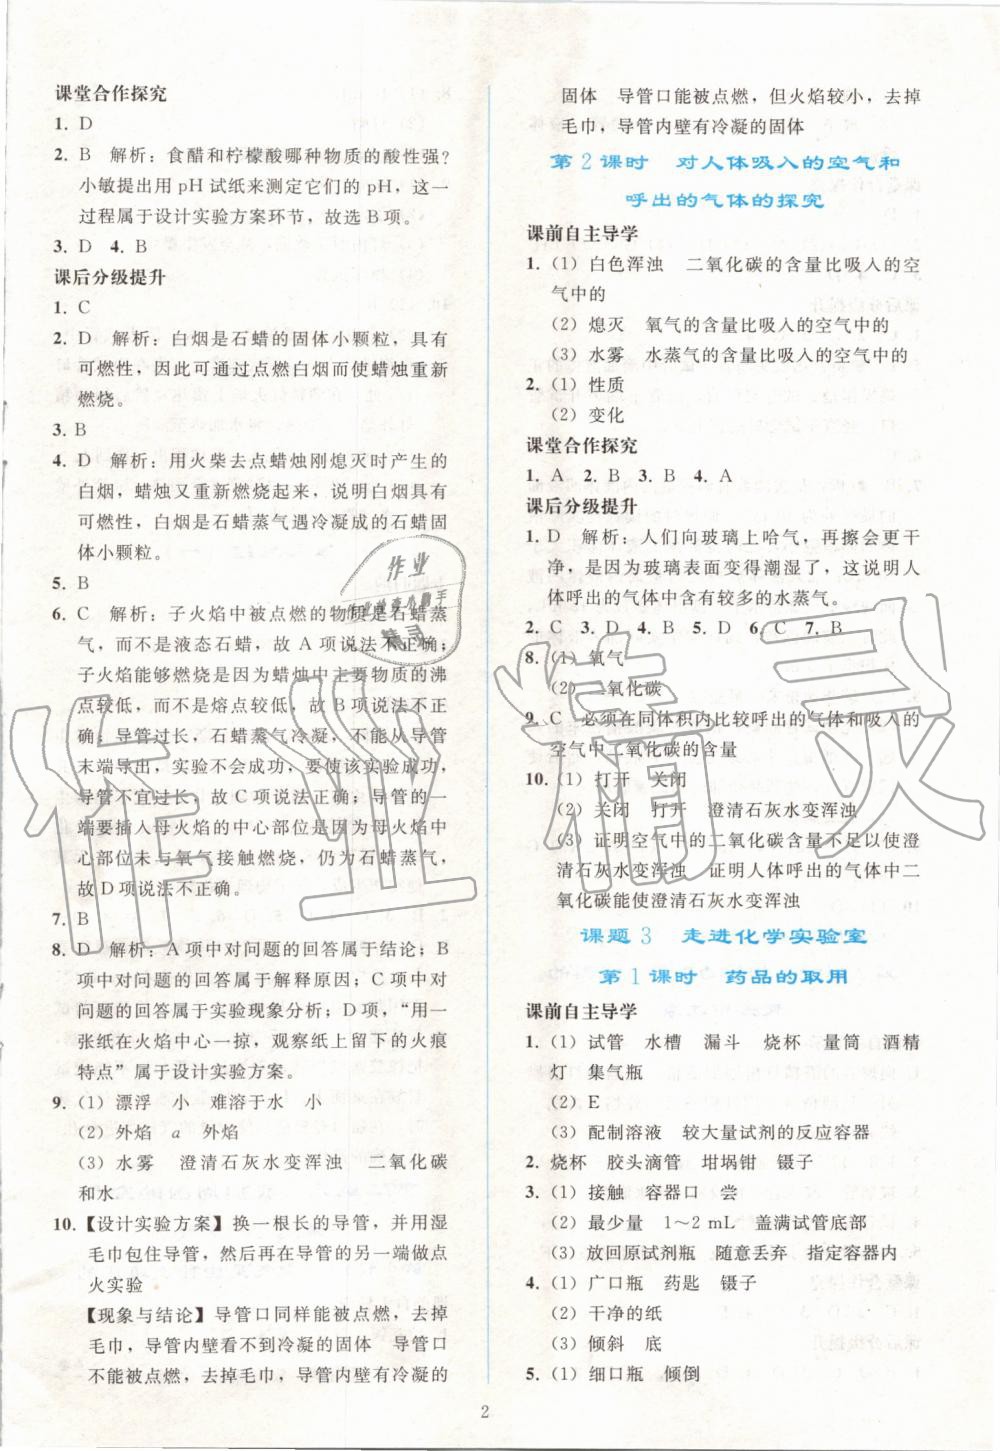 课堂合作探究
1. D
2. B 解析：食醋和柠檬酸哪种物质的酸性强？
小敏提出用 pH 试纸来测定它们的 pH，这一
过程属于设计实验方案环节，故选 B 项。
3. D 4. B
课后分级提升
1. C
2. D 解析：白烟是石蜡的固体小颗粒，具有
可燃性，因此可通过点燃白烟而使蜡烛重新
燃烧。
3. B
4. D 解析：用火柴去点蜡烛刚熄灭时产生的
白烟，蜡烛又重新燃烧起来，说明白烟具有
可燃性，白烟是石蜡蒸气遇冷凝成的石蜡固
体小颗粒。
5. B
6. C 解析：子火焰中被点燃的物质是石蜡蒸
气，而不是液态石蜡，故 A 项说法不正确；
子火焰能够燃烧是因为蜡烛中主要物质的沸
点较低，而不是熔点较低，故 B 项说法不正
确；导管过长，石蜡蒸气冷凝，不能从导管
末端导出，实验不会成功，要使该实验成功，
导管不宜过长，故 C 项说法正确；导管的一
端要插入母火焰的中心部位是因为母火焰中
心部位未与氧气接触燃烧，仍为石蜡蒸气，
故 D 项说法不正确。
7. B
8. D 解析：A 项中对问题的回答属于结论；B
项中对问题的回答属于解释原因；C 项中对
问题的回答属于实验现象分析；D 项，“用一
张纸在火焰中心一掠，观察纸上留下的火痕
特点”属于设计实验方案。
9. (1) 漂浮 小 难溶于水 小
(2) 外焰 a 外焰
(3) 水雾 澄清石灰水变浑浊 二氧化碳
和水
10.【设计实验方案】换一根长的导管，并用湿
毛巾包住导管，然后再在导管的另一端做点
火实验
【现象与结论】导管口同样能被点燃，去掉
毛巾，导管内壁看不到冷凝的固体 导管口
不能被点燃，去掉毛巾，导管内壁有冷凝的
固体 导管口能被点燃，但火焰较小，去掉
毛巾，导管内壁有冷凝的固体
第 2 课时 对人体吸入的空气和
呼出的气体的探究
课前自主导学
1. (1) 白色浑浊 二氧化碳的含量比吸入的空
气中的
(2) 熄灭 氧气的含量比吸入的空气中的
(3) 水雾 水蒸气的含量比吸入的空气中的
2. (1) 性质
(2) 变化
课堂合作探究
1. A 2. B 3. B 4. A
课后分级提升
1. D 解析：人们向玻璃上哈气，再擦会更干
净，是因为玻璃表面变得潮湿了，这说明人
体呼出的气体中含有较多的水蒸气。
2. C 3. D 4. B 5. D 6. C 7. B
8. (1) 氧气
(2) 二氧化碳
9. C 必须在同体积内比较呼出的气体和吸入的
空气中二氧化碳的含量
10. (1) 打开 关闭
(2) 关闭 打开 澄清石灰水变浑浊
(3) 证明空气中的二氧化碳含量不足以使澄
清石灰水变浑浊 证明人体呼出的气体中二
氧化碳能使澄清石灰水变浑浊
课题 3 走进化学实验室
第 1 课时 药品的取用
课前自主导学
1. (1) 试管 水槽 漏斗 烧杯 量筒 酒精
灯 集气瓶
(2) E
(3) 配制溶液 较大量试剂的反应容器
2. 烧杯 胶头滴管 坩埚钳 镊子
3. (1) 接触 容器口 尝
(2) 最少量 1～2 mL 盖满试管底部
(3) 放回原试剂瓶 随意丢弃 指定容器内
4. (1) 广口瓶 药匙 镊子
(2) 干净的纸
(3) 倾斜 底
5. (1) 细口瓶 倾倒
2
作业精灵